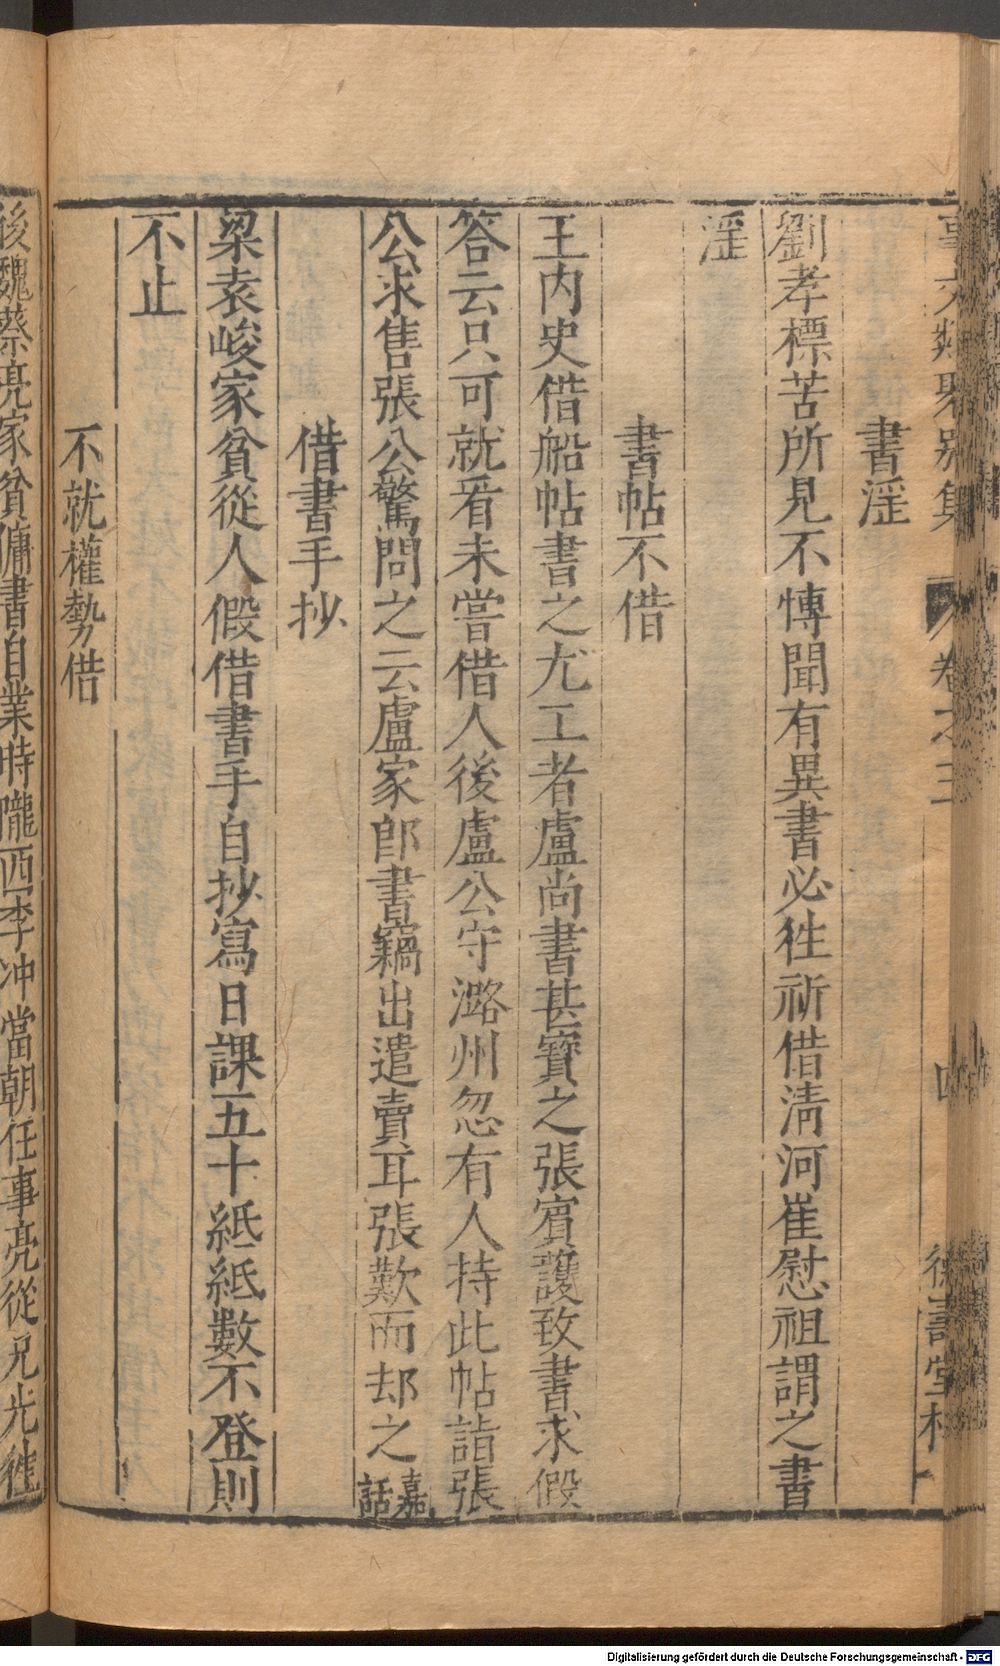 事文類聚別集 卷之三 四 德壽堂梓
書淫
劉孝標苦所見不愽聞有異書必徃祈借淸河崔慰祖謂之書
淫
書帖不借
王内史借船帖書之尤工者盧尚書甚寶之張賓護致書求假
答云只可就看未嘗借人後盧公守潞州忽有人持此帖詣張
公求售張公驚問之云盧家郎書竊出遣賣耳張歎而却之嘉話
借書手抄
梁袁峻家貧從人假借書手自抄寫日課五十紙紙數不登則
不止
不就權勢借
後魏蔡亮家貧傭書自業時隴西李冲當朝任事亮從兄光徃
Digitalisierung gefördert durch die Deutsche Forschungsgemeinschaft - DFG